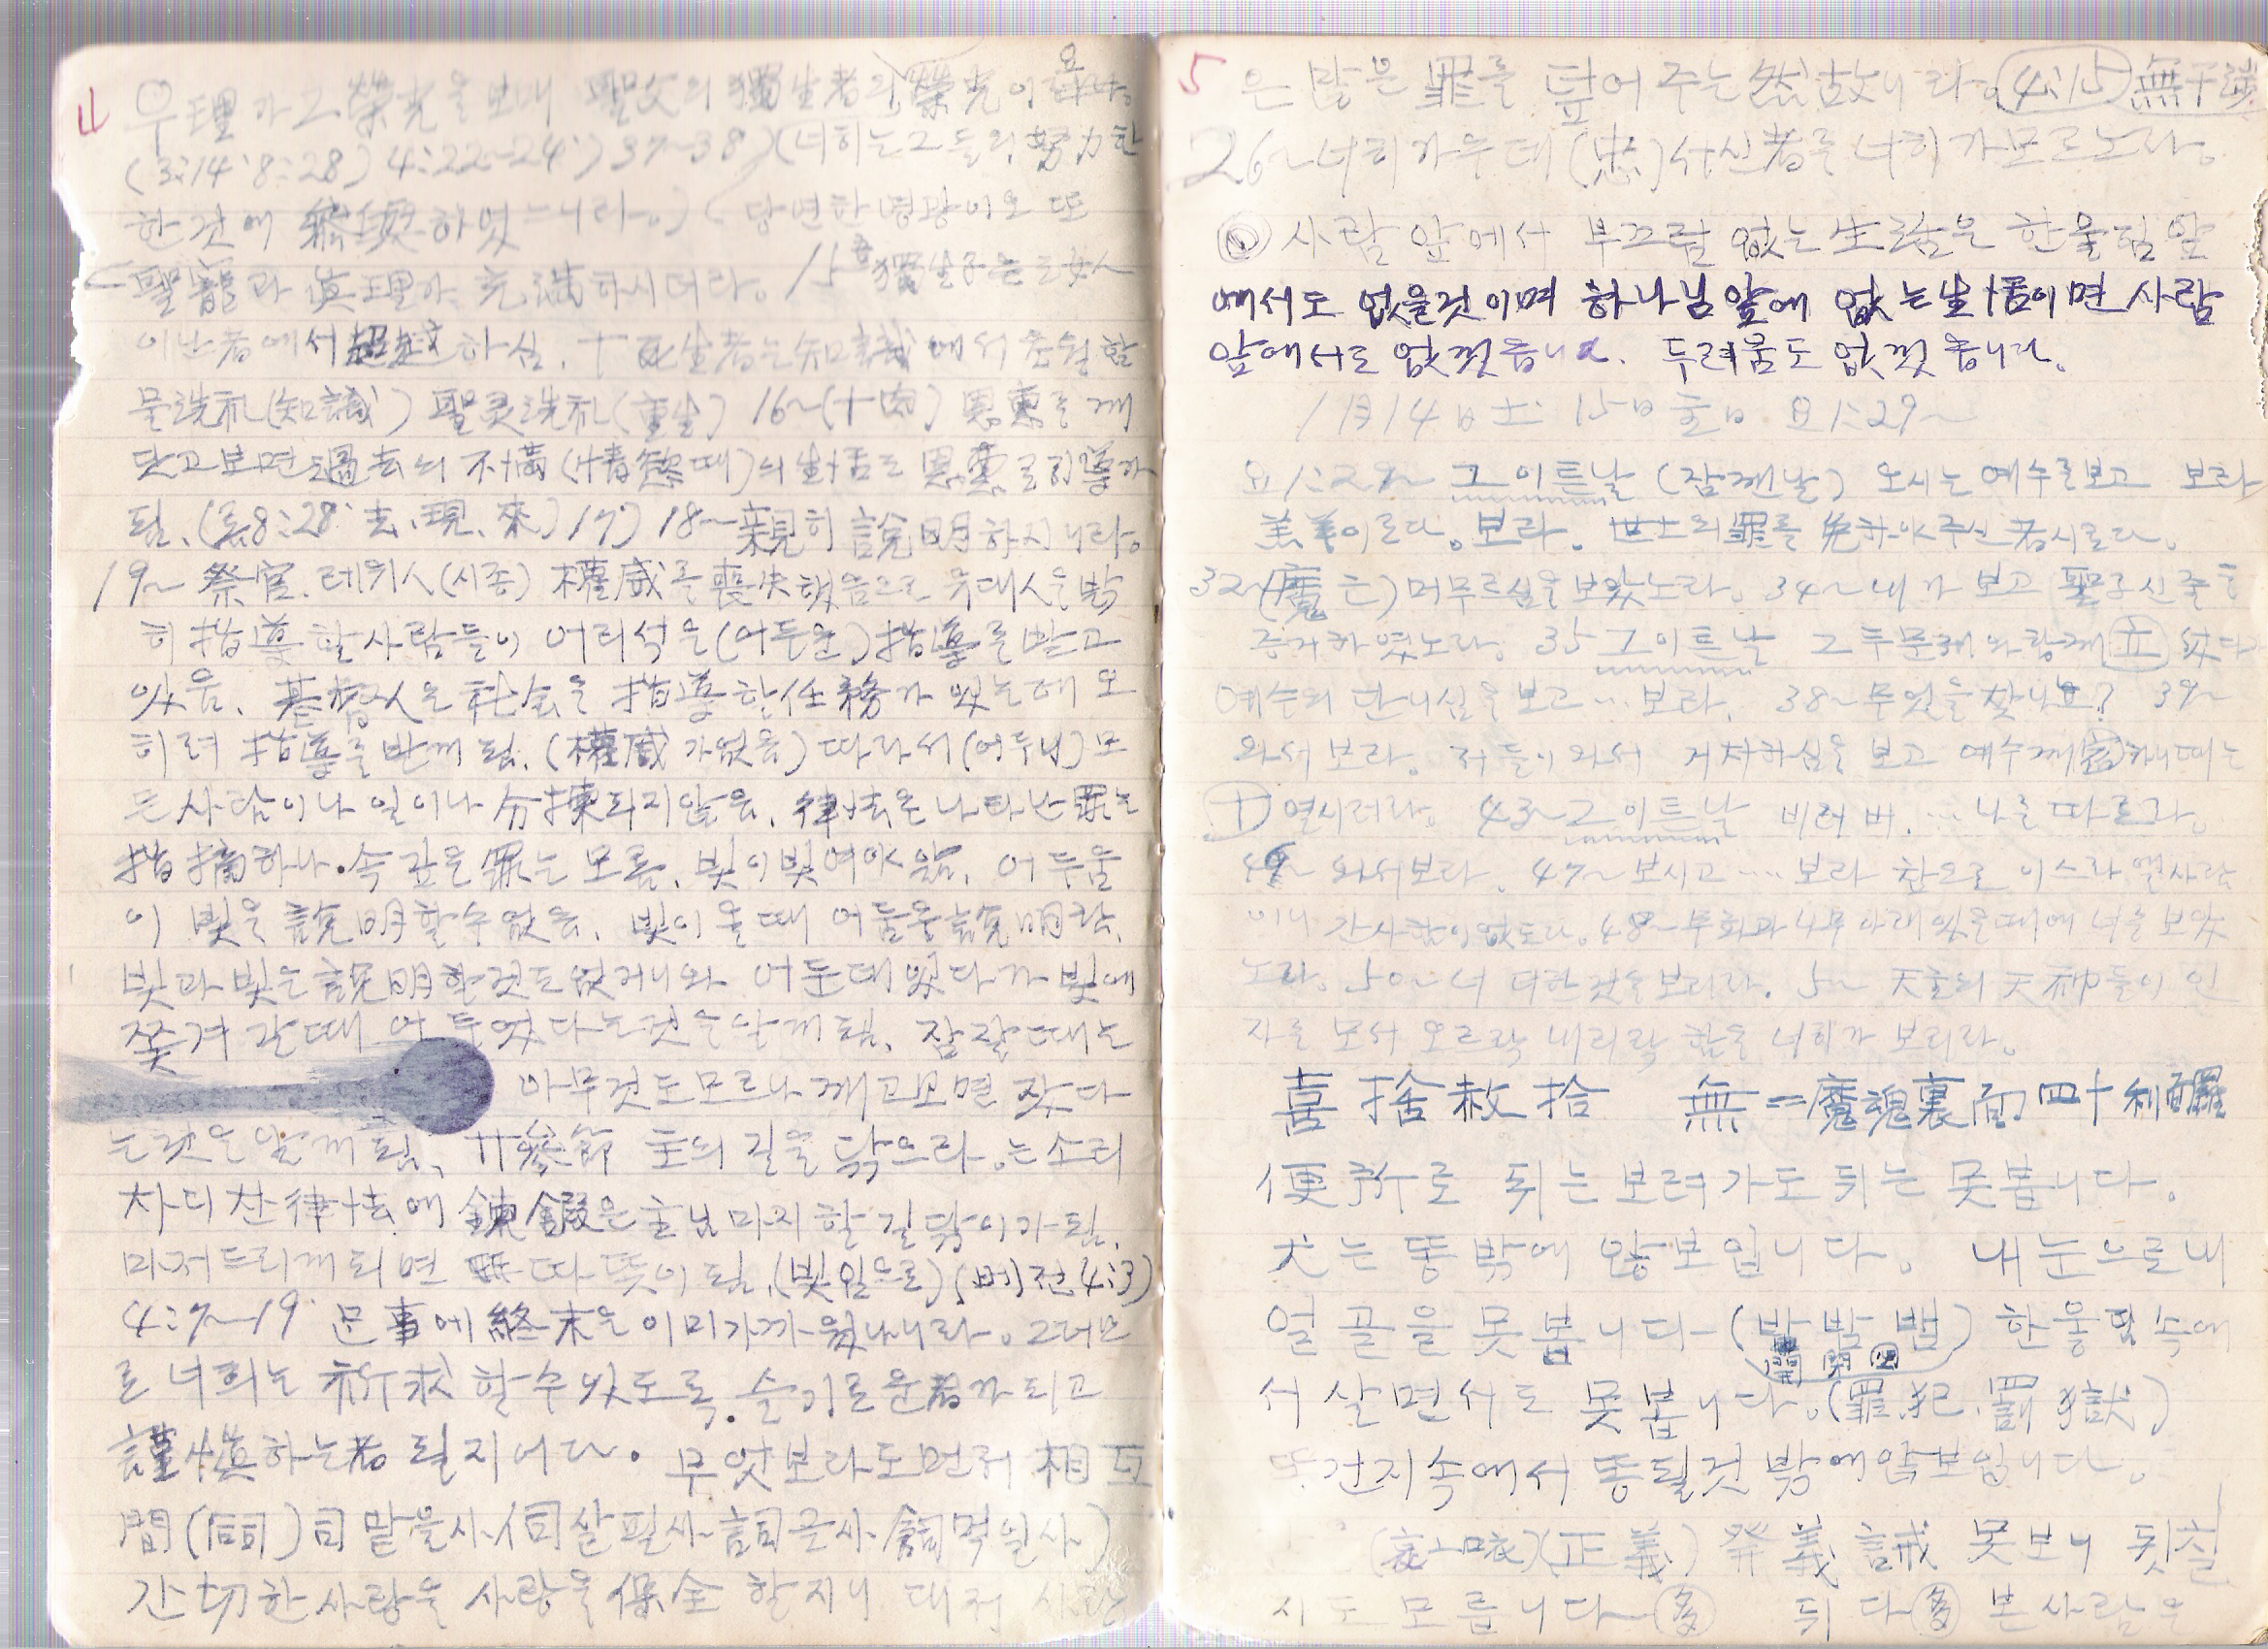 4 우理가 그 榮光을 보매 聖父의 獨生者의 榮光이
(3:14' 8:28) 4:22~24' 37~38) (너희는 그들의 努力한
한것에 하였느니라.) 당연한 명랑이오 또
聖寵과 眞理가 充滿하시더라. 15 獨生子는 女人
이난者에서超越하심. 十死生者는 知識에서 초월함
물洗礼(知識) 聖灵洗礼(重生) 16~(十內) 恩惠를 깨
닷고보면 過去의 不滿(情慾때)의 生活도 恩惠로 引導가
됨. (로8:28' 去、現、來) 17) 18~ 親히 說明하지니라。
19~ 祭官. 레위人(시종) 權威를 喪失했음으로 유대人을 밝
히 指導할사람들이 어리석은(어두운) 指導를 받고
있음. 基督人은 社会을 指導할任務가 있는데 오
히려 指導를 받께 됨. (權威가없음) 따라서 (어두님) 모
든 사람이나 일이나 分揀되지않음. 律法은 나타난 罪는
指摘하나. 속 깊은 罪는 모름. 빛이빛여야 앎. 어두움
이 빛을 說明할수 없음. 빛이 올때 어둠을 說明함.
빛과 빛은 說明할것도 없거니와 어둔데 있다가 빛에
쫓겨 갈때 어두었다는것을 알께됨. 잠잘때는
아무것도모르나 깨고보면 잤다
는것을 알께 됨. 廿參節 主의 길을 닦으라.는소리
차디찬律法에 鍊鍛은 主님 마지할 길 닦이가 됨.
마저드리께 되면 따뜻이 됨. (빛임으로) (베전4:3)
4:7~19' 事에 終末은 이미가까웠나니라。그러므
로 너희는 祈求할수있도록. 슬기로운者가 되고
謹愼하는者 될지어다. 무엇보라도먼저 相互
間(伺) 司맡을사 伺살필사 詞글사 飼먹일사)
간切한사랑을 사랑을 保全할지니 대저 사랑
5 은 많은 罪를 덮어 주는 然故니라. 4:15 無干涉
26~ 너희가운데 (忠) 서신者를 너희가모르노라。
사람 앞에서 부끄럼 없는 生活은 한울님 앞
에서도 없을것이며 하나님앞에 없는生活이면 사람
앞에서도 없껏읍니다. 두려움도 없껏읍니다.
1月14日土 15日主日 요1:29~
요1:29~ 그이튼날 (잠깬날) 오시는 예수를보고 보라
羔羊이로다. 보라. 世上의罪를 免하야주신者시로다.
32~ 머무르심을 보았노라. 34~ 내가 보고 聖子신줄을
증거하였노라. 35 그이튼날 그 두문제와함께 立 섰다
예수의 단니심을 보고… 보라. 38~ 무엇을찾나뇨? 39~
와서 보라. 저들이 와서 거차하심을 보고 예수께 하니때는
十 열시러라. 43~ 그이튼날 비러버. … 나를 따르라.
46~ 와서보라. 47~ 보시고 … 보라 참으로 이스라엘사람
이니 간사함이없도다. 48~ 무화과나무아래있을때에 너를 보았
노라. 50~ 너 더한것을보리라. 5~ 天主의 天神들이 인
자를 모셔 오르락 내리락 함을 너희가 보리라.
喜捨赦拾 無=魔魂裏面四十利
便所로 뒤는 보려가도 뒤는 못봅니다.
犬는 똥밖에 않보입니다. 내 눈으로 내
얼골을 못봅니다-(밖밤밥) 한울님속에
開 間 四
서 살면서도 못봅니다.(罪.犯.罰獄)
똥건지속에서 똥될것 밖에 않보입니다.
(哀 )(正義) 義誡 못보니 뒷칠
지도 모릅니다~ 多 뒤다多 본사람은